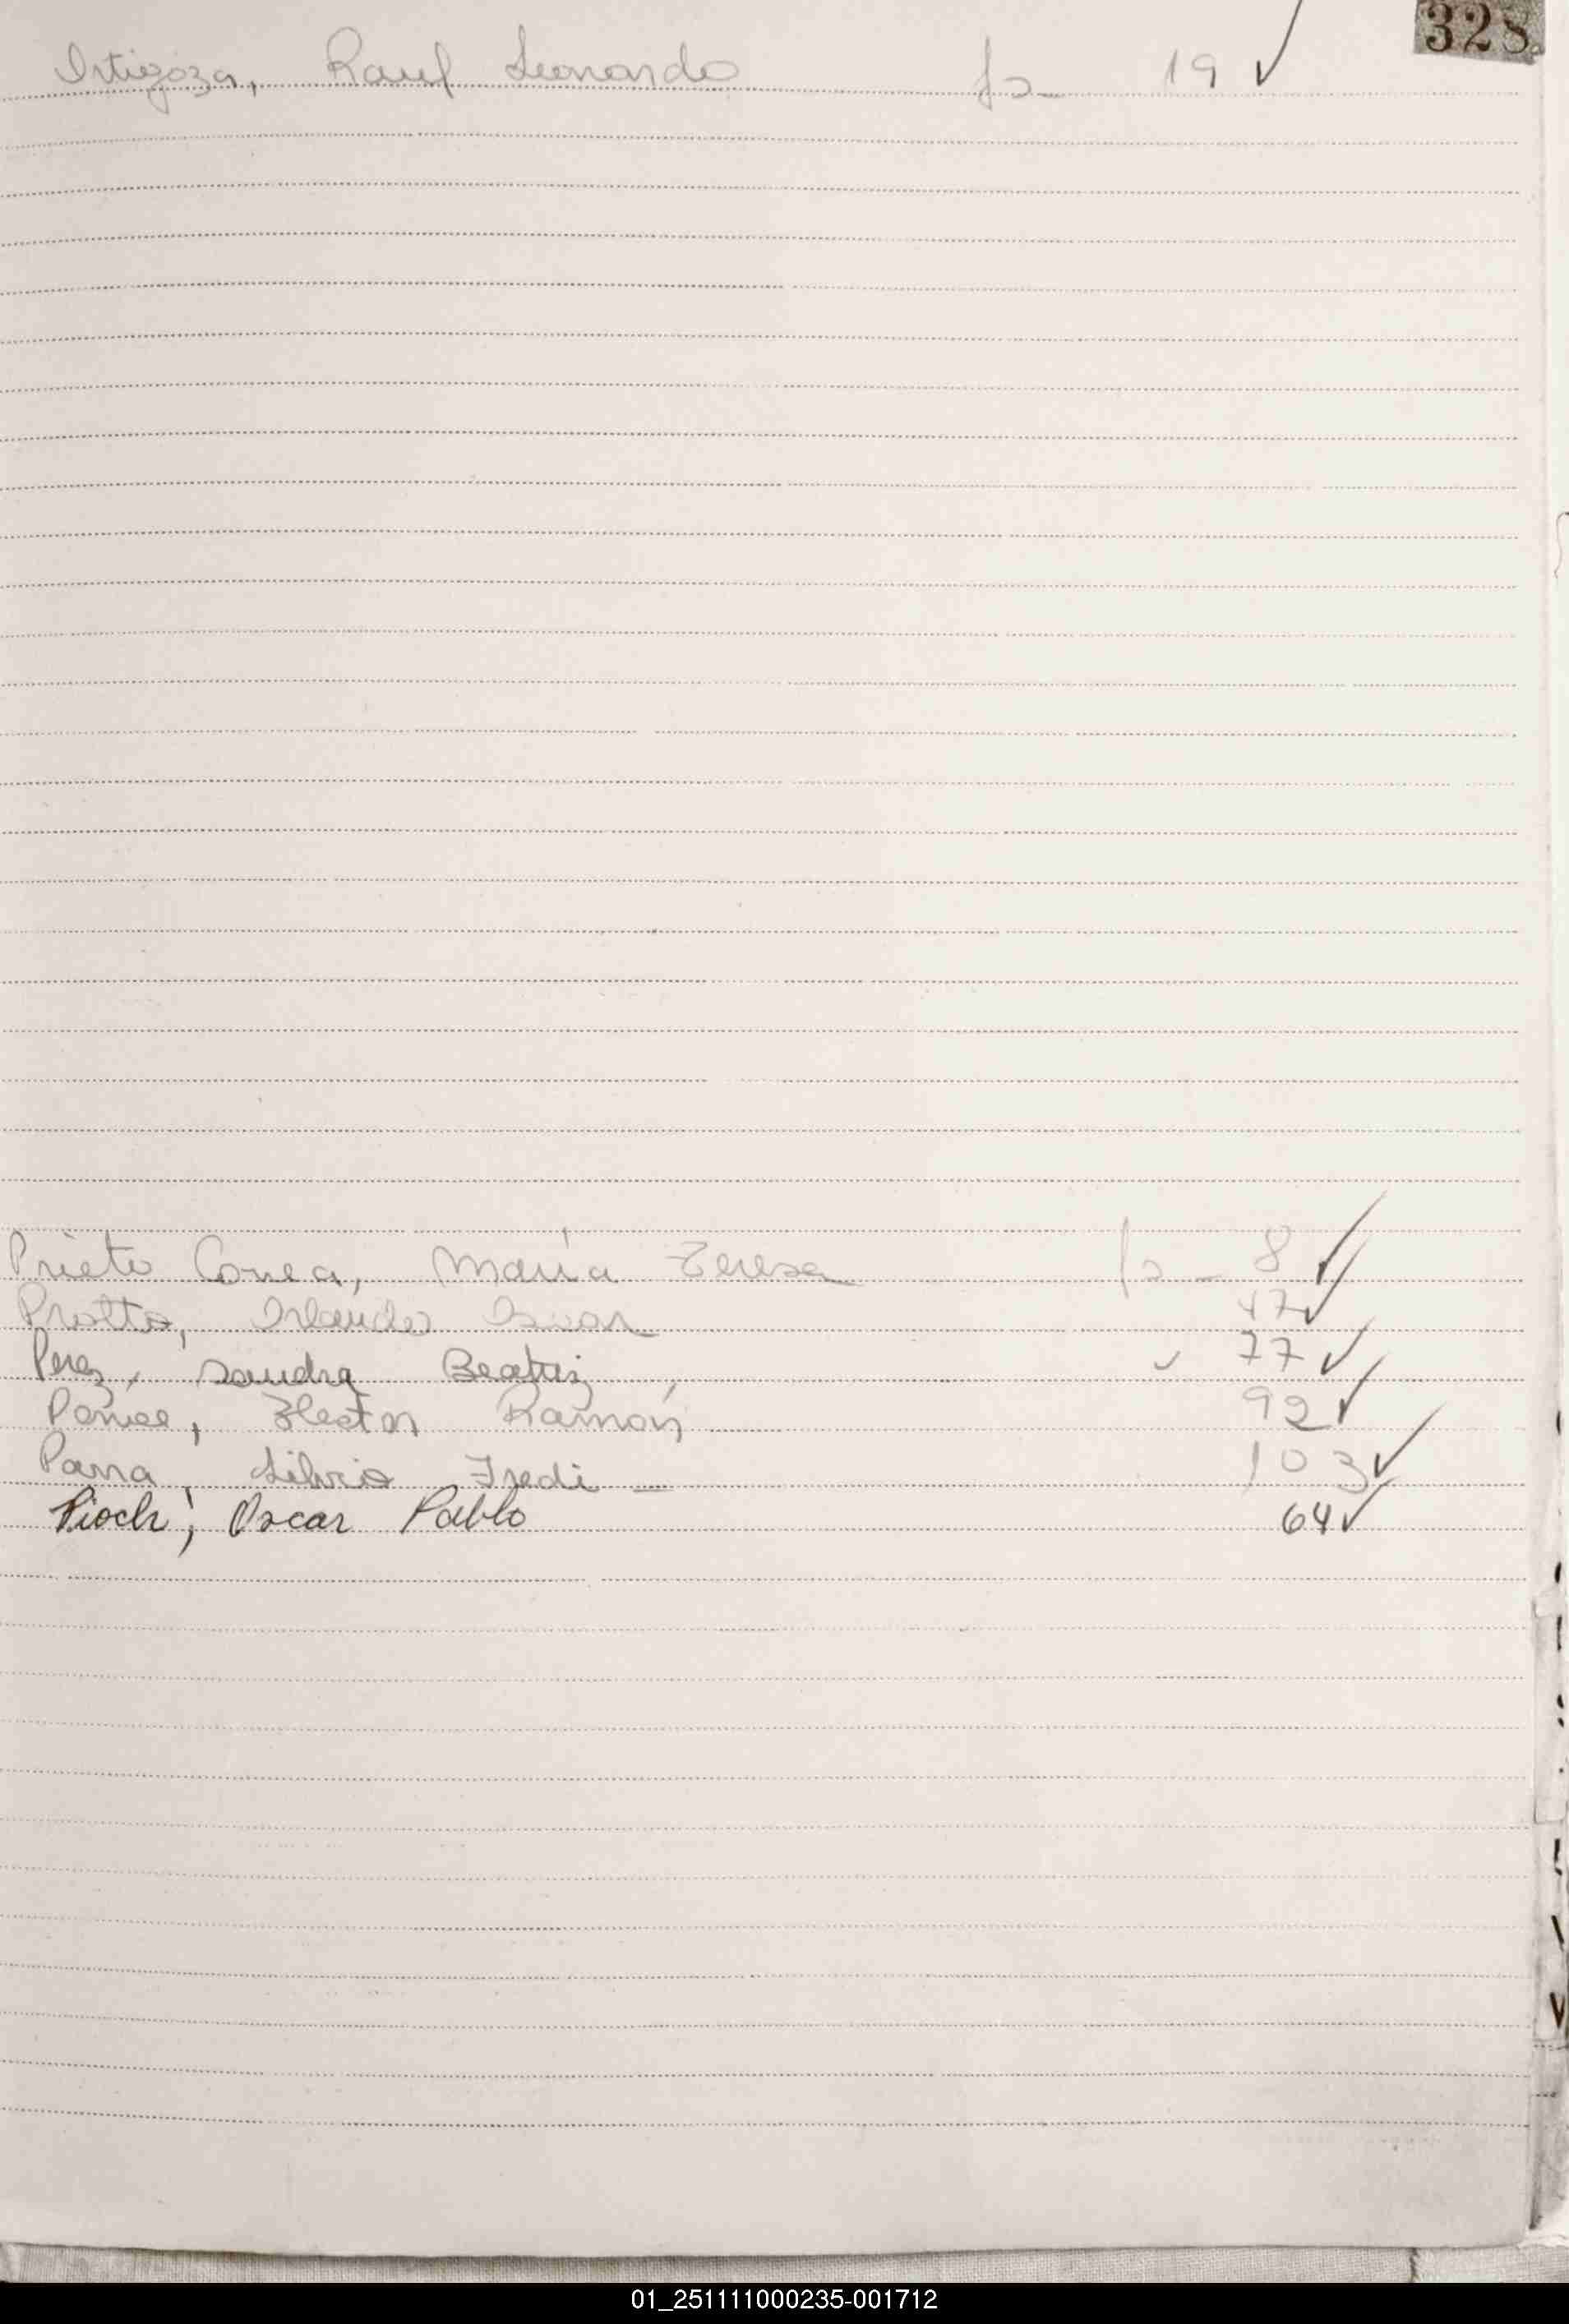 328
Ortigoza, Raul Leonardo fs_ 19 ✓
Prieto Correa, María Teresa fs_ 8 ✓
Protto, Orlando 47 ✓
Perez, Sandra Beatriz 77 ✓
Hector Ramón 92 ✓
Parra, Silvio Fredi _ 103 ✓
Pioch, Oscar Pablo 64 ✓
01_251111000235-001712